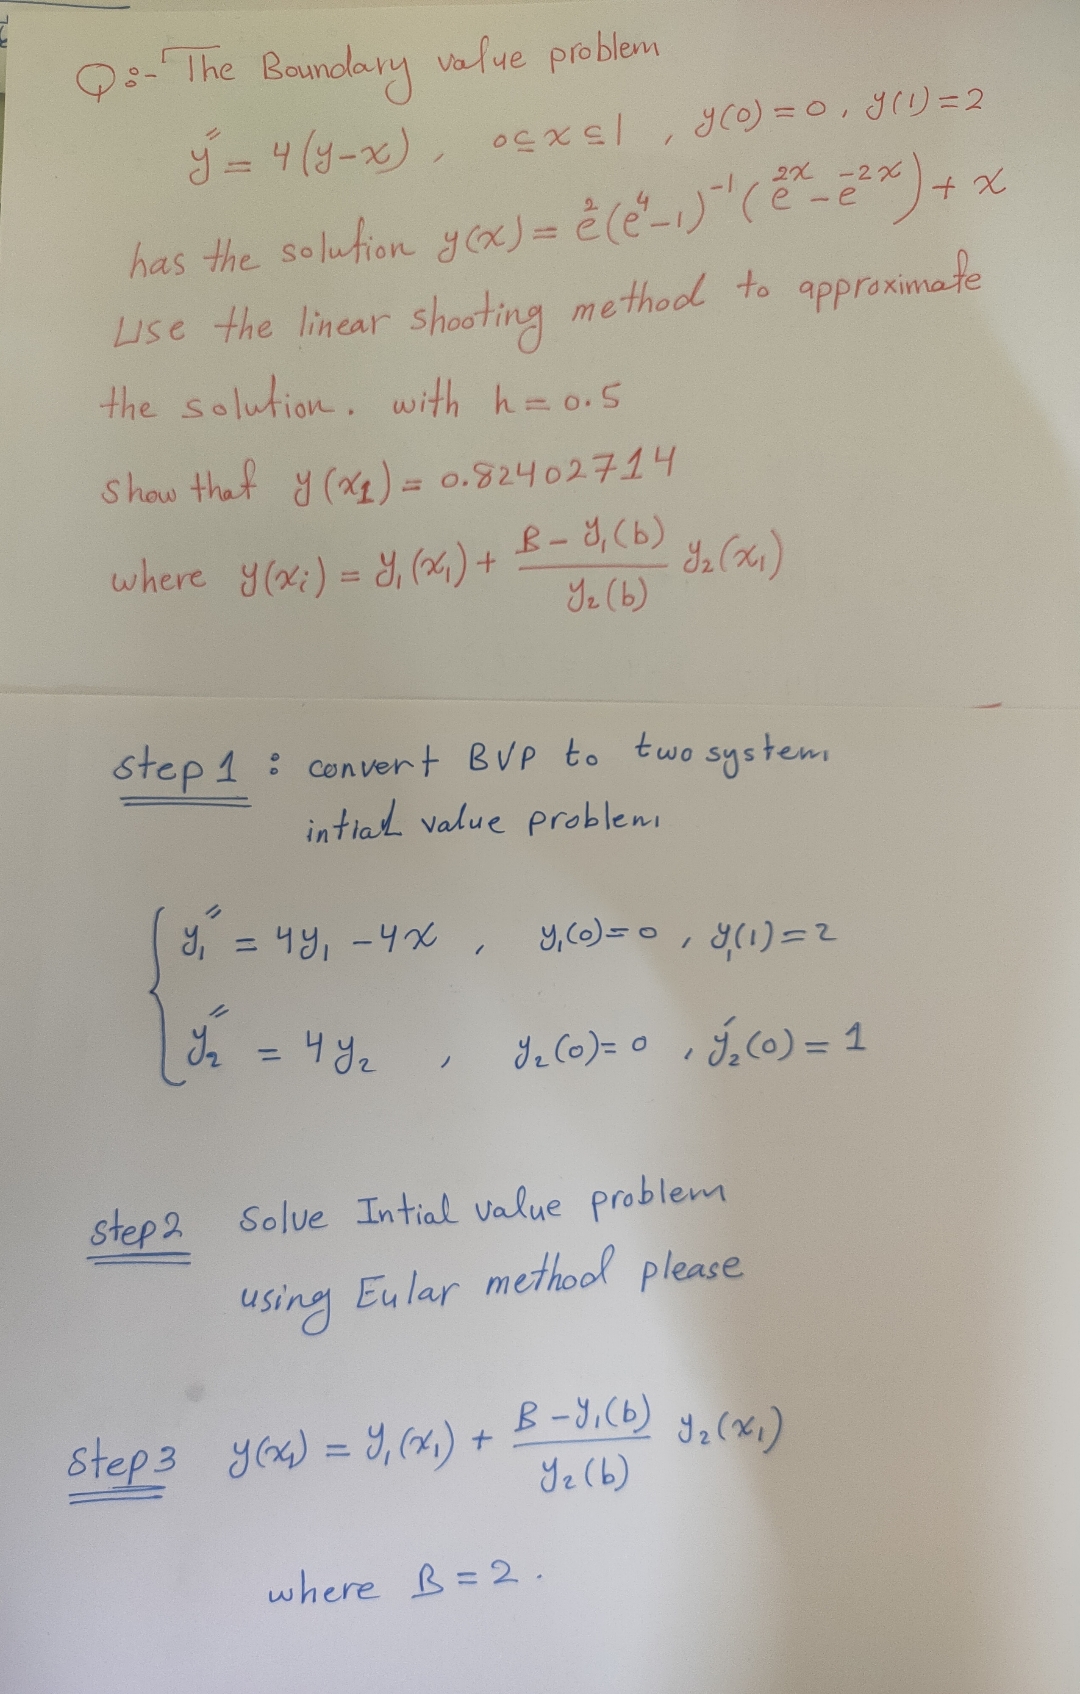 Q:- The Boundary value problem
y″ = 4(y-x), 0≤x≤1, y(0)=0, y(1)=2
has the solution y(x) = e²(e⁴-1)⁻¹(e²ˣ-e⁻²ˣ)+x
Use the linear shooting method to approximate
the solution. with h=0.5
show that y(x₁) = 0.82402714
where y(xᵢ) = y₁(x₁) + B-y₁(b)/y₂(b) y₂(x₁)
step 1 : convert BVP to two system
intial value problem
y₁″ = 4y₁ -4x , y₁(0)=0 , y₁(1)=2
y₂″ = 4y₂ , y₂(0)=0 , y₂′(0)=1
step2 Solve Intial value problem
using Eular method please
step3 y(x₁) = y₁(x₁) + B-y₁(b)/y₂(b) y₂(x₁)
where B=2.